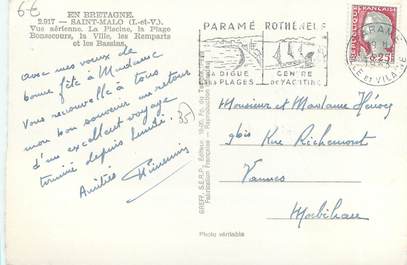 6€
EN BRETAGNE.
2.917 - SAINT-MALO (I.-et-V.)
Vue aérienne. La Piscine, la Plage
Bonsecours, la Ville, les Remparts
et les Bassins.
PARAMÉ ROTHÉNEUF
SA DIGUE
SES PLAGES
CENTRE
DE YACHTING
PARAMÉ
ILLE ET VILAINE
0,25
avec mes voeux de
bonne fête à Madame
Vous renouvelle à tous
mon bon souvenir au retour
d'un excellent voyage
terminé depuis lundi.
Amitiés
35
Monsieur et Madame
9bis Rue Richemont
Vannes
Morbihan
Photo véritable